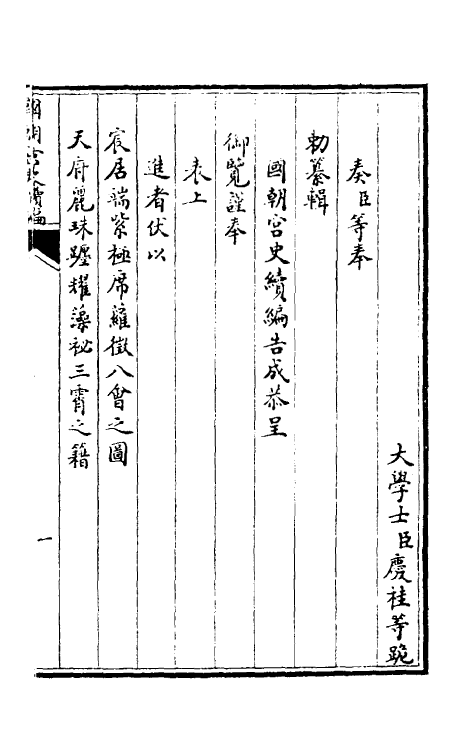 大學士臣慶桂等跪
奏臣等奉
勅纂輯
國朝宮史續編告成恭呈
御覽謹奉
表上
進者伏以
宸居端紫極席蘿徵八會之圖
天府麗珠躔耀藻祕三霄之籍
國朝宮史續編
一